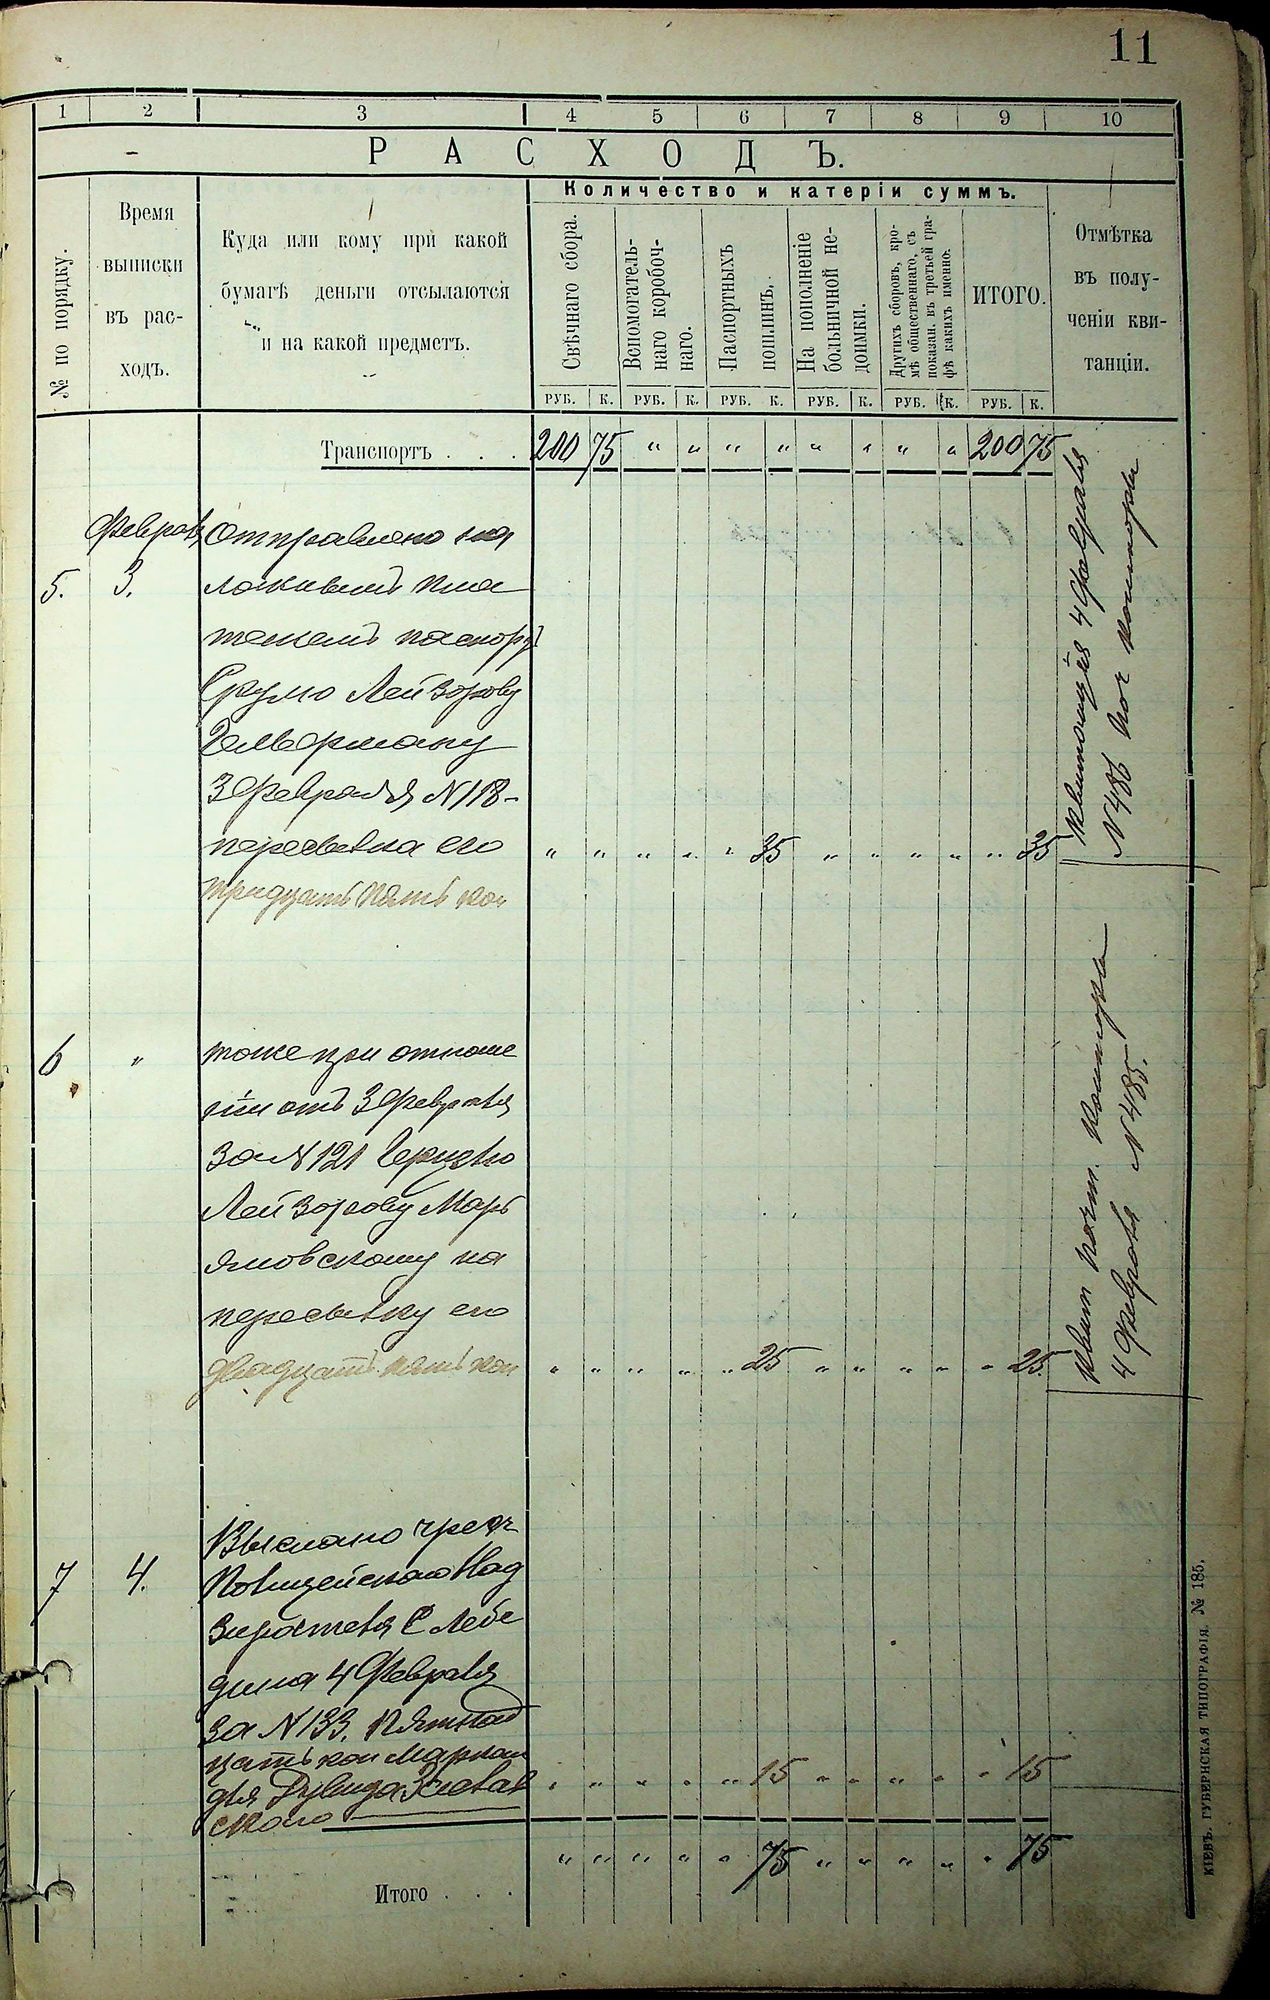 11
1 2 3 4 5 6 7 8 9 10
РАСХОДЪ.
Количество и катеріи суммъ.
№ по порядку.
Время
выписки
въ рас-
ходъ.
Куда или кому при какой
бумагѣ деньги отсылаются
и на какой предметъ.
Свѣчнаго сбора.
Вспомогатель-
наго коробоч-
наго.
Паспортныхъ
пошлинъ.
На пополненіе
больничной не-
доимки.
Другихъ сборовъ, кро-
мѣ общественнаго, съ
показан. въ третьей гра-
фѣ какихъ именно:
ИТОГО.
Отмѣтка
въ полу-
ченіи кви-
танціи.
РУБ. К. РУБ. К. РУБ. К. РУБ. К. РУБ. К. РУБ. К.
Транспортъ . . . 200 75 " " " " " " " " 200 75
Февраля Отправлено на
5. 3. ложенымъ пла
тежемъ паспортъ
Срулю Лейзорову
Гельферману
3 Февраля N 118 -
пересылка его " " " " " 35 " " " " " 35
тридцать пять коп
Квитанція 4 Февраля
N 486 поч конторы
6 " тоже при отноше
ніи отъ 3 Февраля
за N 121
Лейзорову Марь
яновскому на
пересылку его
двадцать пять коп " " " " " 25 " " " " " 25.
Квит почт. конторы
4 Февраля N 485.
Выслано чрезъ
7 4. Полицейскаго Над
зирателя С Лебе
дина 4 Февраля
за N 133. Пятнад
цать коп марками " " " " " 15 " " " " " 15
для Дувида
скаго
Итого . . . " " " " " 75 " " " " " 75
КІЕВЪ. ГУБЕРНСКАЯ ТИПОГРАФІЯ. № 185.